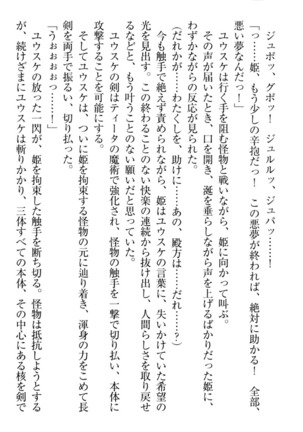 ジュボッ、グボッ！　ジュルルッ、ジュバッ……！
「っ……姫、もう少しの辛抱だっ！　この悪夢が終われば、絶対に助かる！　全部、
悪い夢なんだっ！」
ユウスケは行く手を阻む怪物と戦いながら、姫に向かって叫ぶ。
その声が届いたとき、口を開き、涎を垂らしながら声を上げるばかりだった姫に、
わずかながらの反応が見られた。
（だれかが……わたくしを、助けに……あの、殿方は……だれ……？）
今も触手で絶えず責められながら、姫はユウスケの言葉に、失いかけていた希望の
光を見出す。この終わることのない快楽の連続から抜け出し、人間らしさを取り戻せ
るなどと、もう叶うことのない願いだと思っていた。
ユウスケの剣はティータの魔術で強化され、怪物の触手を一撃で切り払い、本体に
攻撃することを可能にする。
そしてユウスケは、ついに姫を拘束する怪物の元に辿り着き、渾身の力をこめて長
剣を両手で振るい、切り払った。
「うぉぉぉぉっ……！」
ユウスケの放った一閃が、姫を拘束した触手を断ち切る。怪物は抵抗しようとする
が、続けざまにユウスケは斬りかかり、三体すべての本体、その中心にある核を剣で